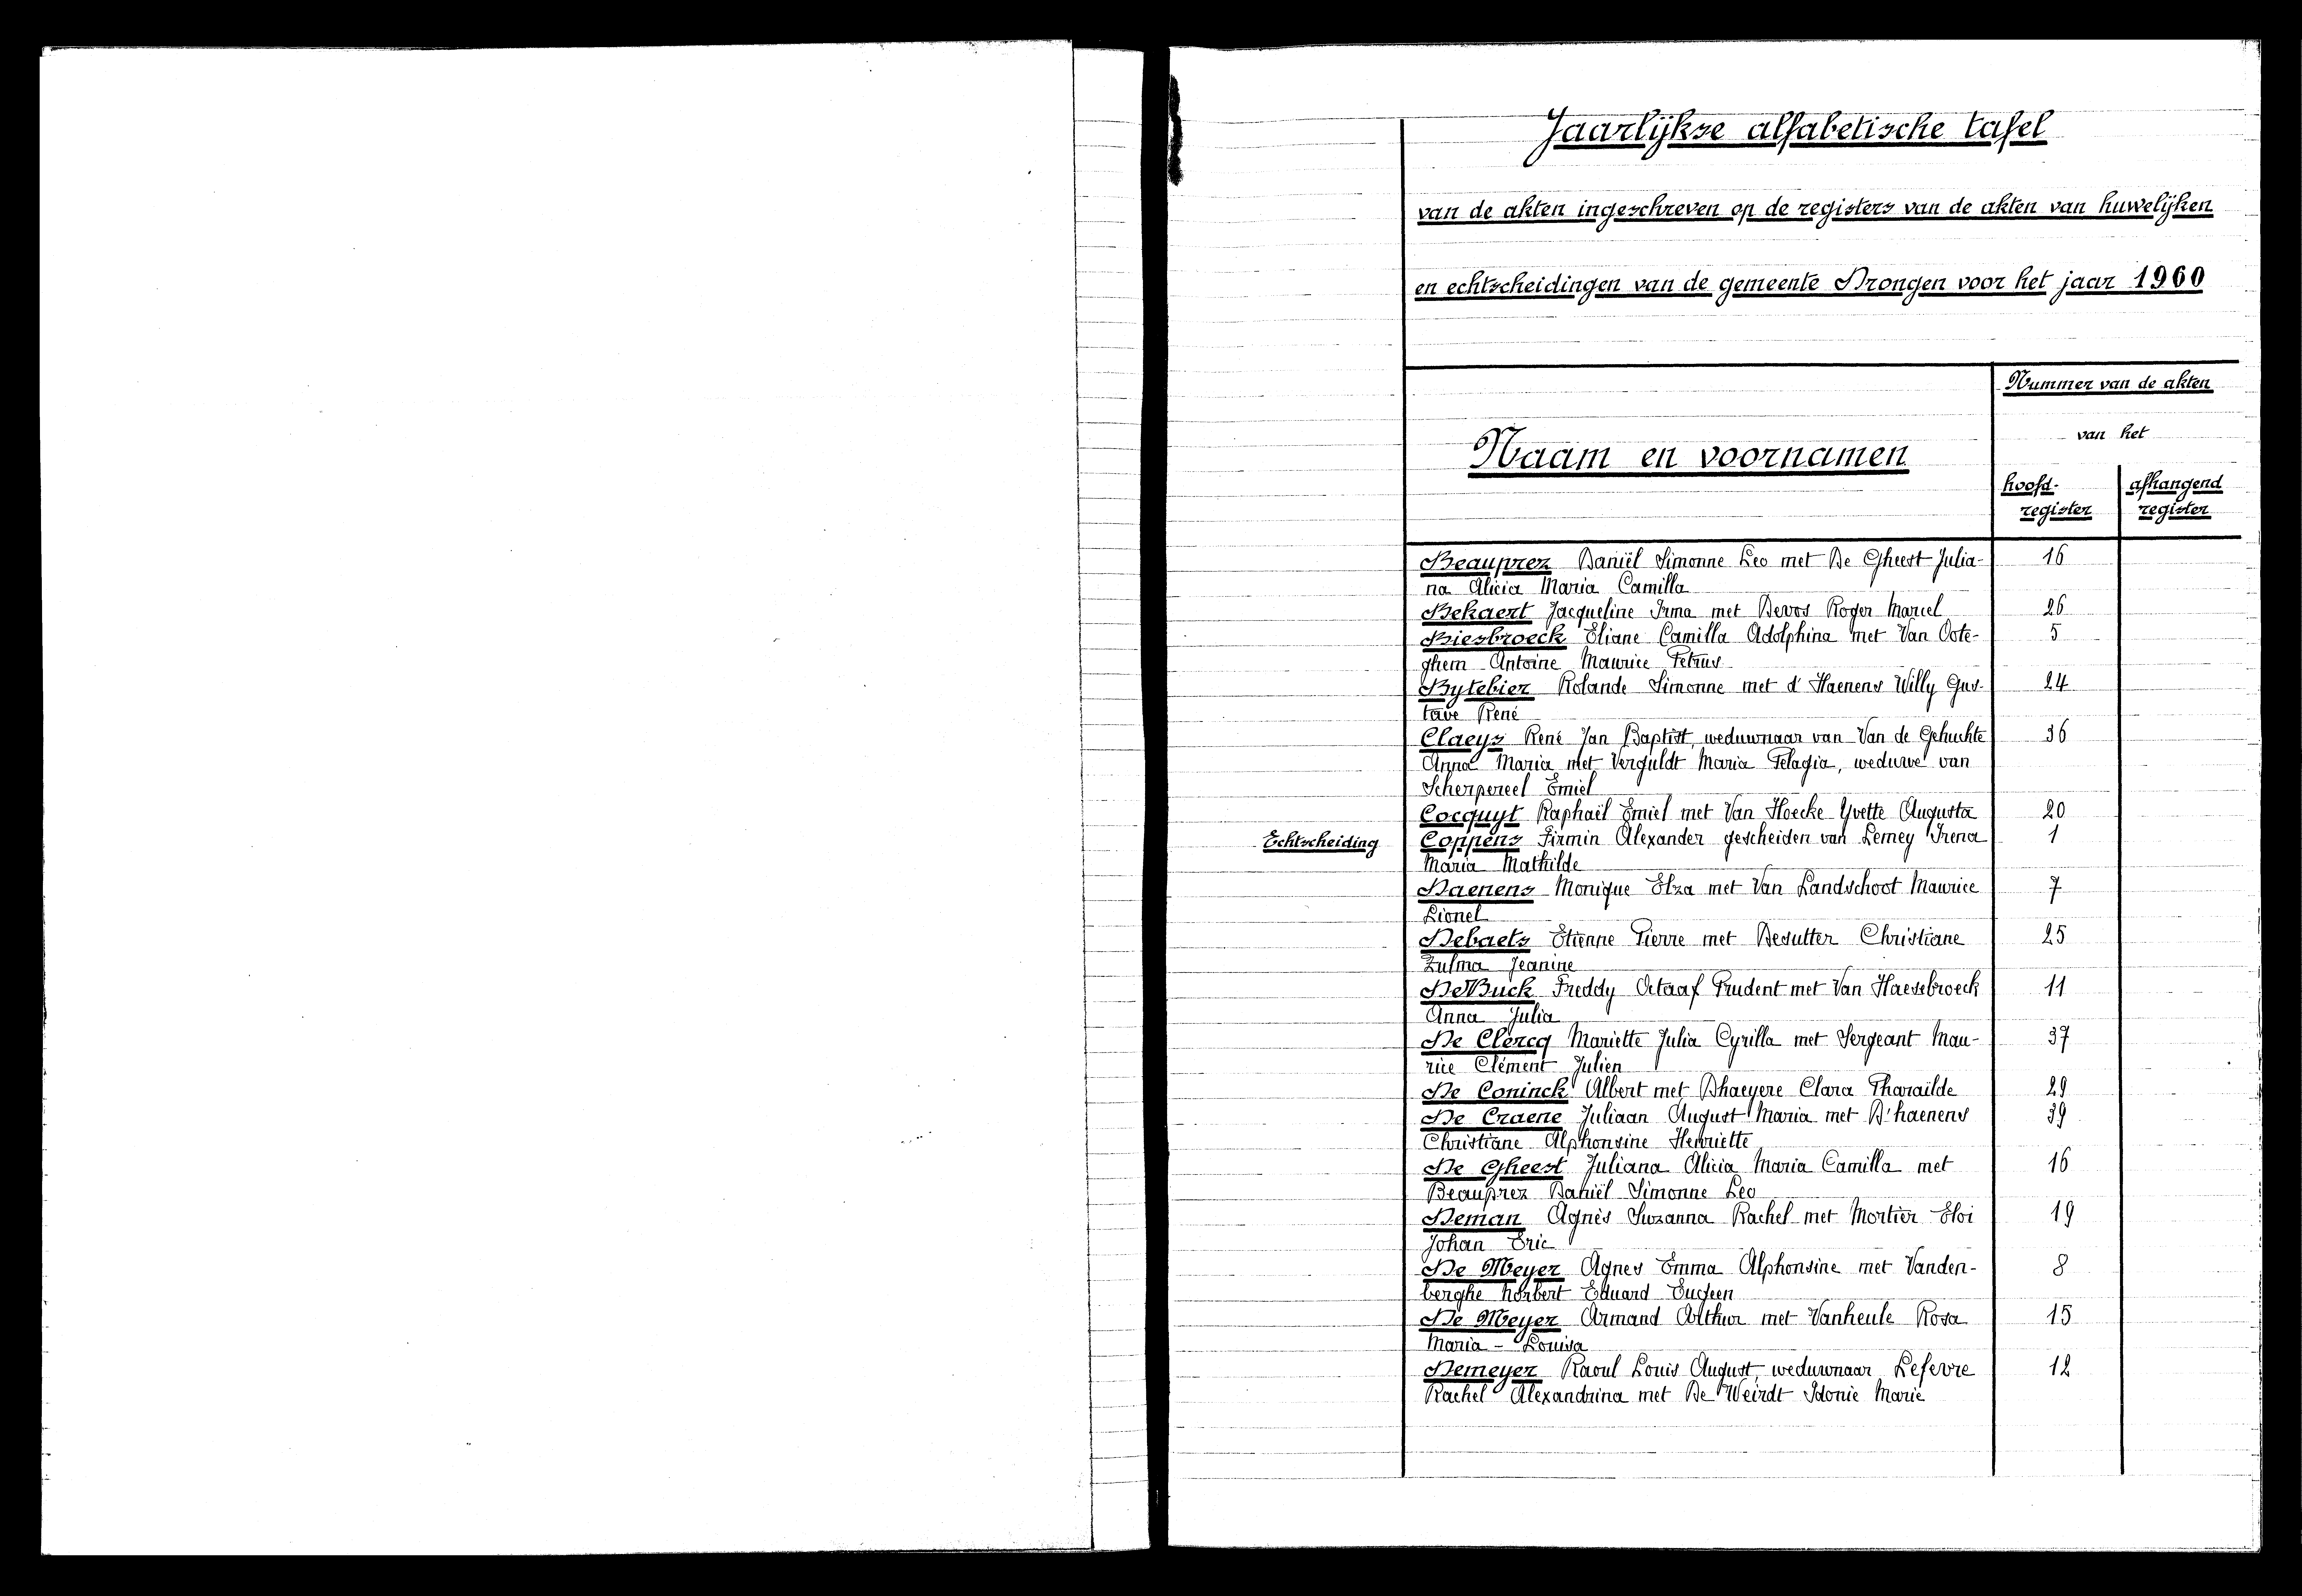 Jaarlijkse alfabetische tafel
van de akten ingeschreven op de registers van de akten van huwelijken
en echtscheidingen van de gemeente Drongen voor het jaar 1960
Nummer van de akten
van het
Naam en voornamen
hoofd- afhangend
register register
Beauprez Daniël Simonne Leo met De Gheest Julia- 16
na Alicia Maria Camilla
Bekaert Jacqueline Irma met Devos Roger Marcel 26
Biesbroeck Eliane Camilla Adolphina met Van Oote- 5
ghem Antoine Maurice Petrus
Bytebier Rolande Simonne met d'Haenens Willy Gus- 24
tave René
Claeys René Jan Baptist, weduwnaar van Van de Gehuchte 36
Anna Maria met Verguldt Maria Pelagia, weduwe van
Scherpereel Emiel
Cocquyt Raphaël Emiel met Van Hoecke Yvette Augusta 20
Echtscheiding Coppens Firmin Alexander gescheiden van Lemey Irena 1
Maria Mathilde
Daenens Monique Elza met Van Landschoot Maurice 7
Lionel
Debaets Etienne Pierre met Desutter Christiane 25
Zulma Jeanine
De Buck Freddy Octaaf Prudent met Van Haesebroeck 11
Anna Julia
De Clercq Mariette Julia Cyrilla met Sergeant Mau- 37
rice Clément Julien
De Coninck Albert met Dhaeyere Clara Pharaïlde 29
De Craene Juliaan August Maria met D'haenens 39
Christiane Alphonsine Henriette
De Gheest Juliana Alicia Maria Camilla met 16
Beauprez Daniël Simonne Leo
Deman Agnès Suzanna Rachel met Mortier Eloi 19
Johan Eric
De Meyer Agnes Emma Alphonsine met Vanden- 8
berghe Norbert Eduard Eugeen
De Meyer Armand Arthur met Vanheule Rosa 15
Maria - Louisa
Demeyer Raoul Louis August, weduwnaar Lefevre 12
Rachel Alexandrina met De Weirdt Idonie Marie